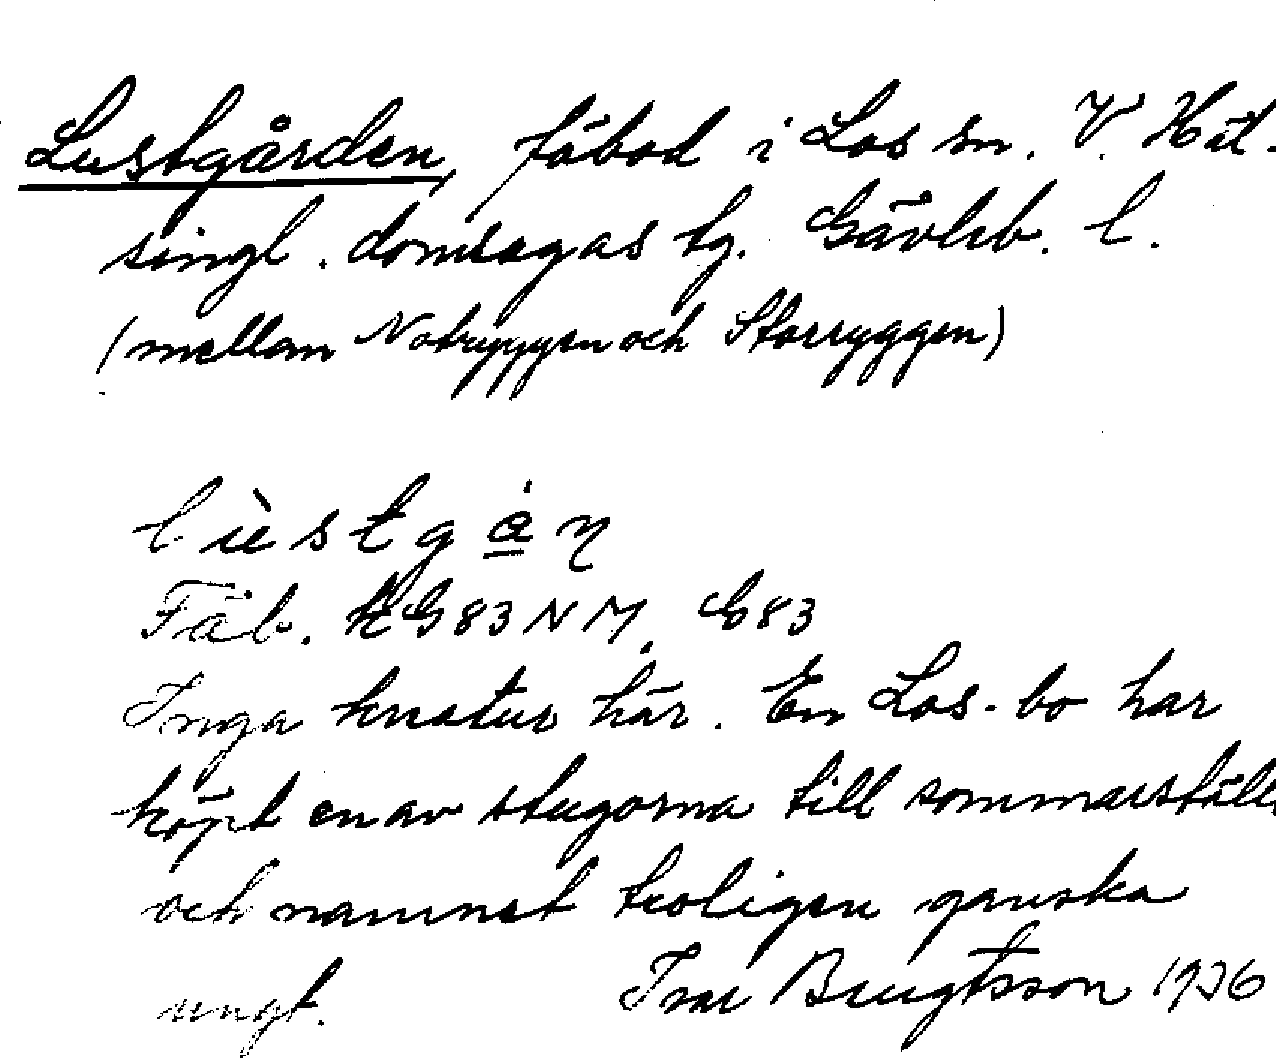 Lustgården, fäbod i Los sn. V. Häl-
singl. domsagas tg. Gävleb. l.
(mellan Notryggen och Storryggen)
Fäb. G83
Inga kreatur här. En Los-bo har
köpt en av stugorna till sommarställe
och namnet troligen ganska
ungt. Ivar Bengtsson 1936